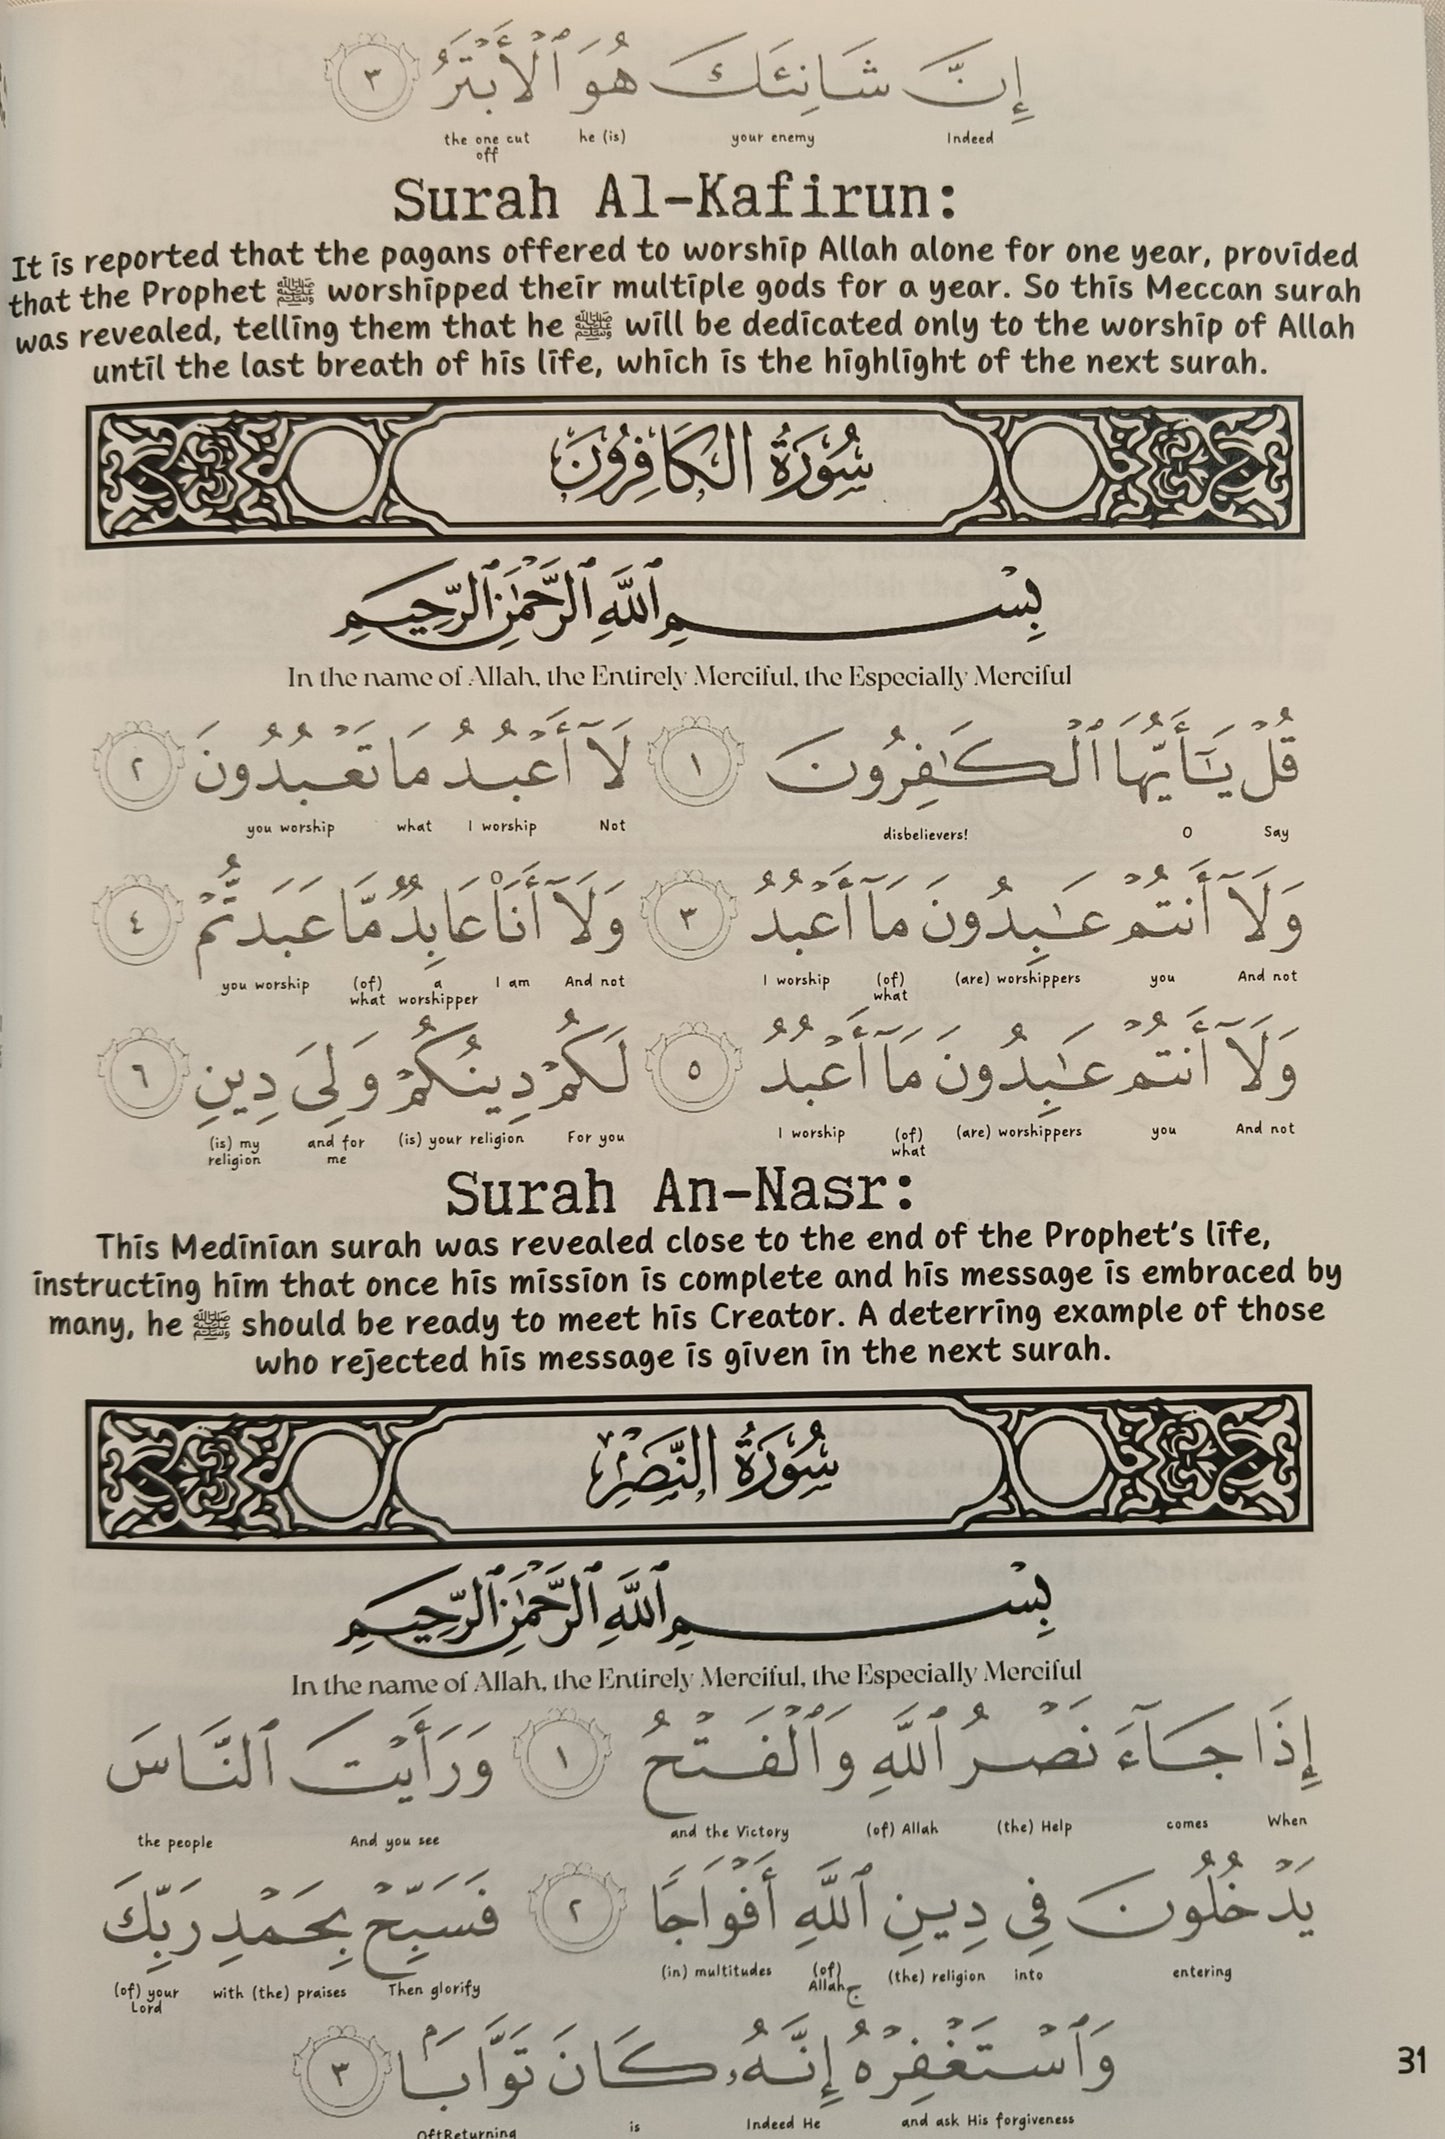 إِنَّ شَانِئَكَ هُوَ ٱلْأَبْتَرُ ٣
Indeed your enemy he (is) the one cut off
Surah Al-Kafirun:
It is reported that the pagans offered to worship Allah alone for one year, provided
that the Prophet ﷺ worshipped their multiple gods for a year. So this Meccan surah
was revealed, telling them that he ﷺ will be dedicated only to the worship of Allah
until the last breath of his life, which is the highlight of the next surah.
سُورَةُ الكَافِرُونَ
بِسْمِ ٱللَّهِ ٱلرَّحْمَٰنِ ٱلرَّحِيمِ
In the name of Allah, the Entirely Merciful, the Especially Merciful
قُلْ يَٰٓأَيُّهَا ٱلْكَٰفِرُونَ ١ لَآ أَعْبُدُ مَا تَعْبُدُونَ ٢
Say O disbelievers! Not I worship what you worship
وَلَآ أَنتُمْ عَٰبِدُونَ مَآ أَعْبُدُ ٣ وَلَآ أَنَا۠ عَابِدٌ مَّا عَبَدتُّمْ ٤
And not you (are) worshippers (of) what I worship And not I am a worshipper (of) what you worship
وَلَآ أَنتُمْ عَٰبِدُونَ مَآ أَعْبُدُ ٥ لَكُمْ دِينُكُمْ وَلِىَ دِينِ ٦
And not you (are) worshippers (of) what I worship For you (is) your religion and for me (is) my religion
Surah An-Nasr:
This Medinian surah was revealed close to the end of the Prophet's life,
instructing him that once his mission is complete and his message is embraced by
many, he ﷺ should be ready to meet his Creator. A deterring example of those
who rejected his message is given in the next surah.
سُورَةُ النَّصْرِ
بِسْمِ ٱللَّهِ ٱلرَّحْمَٰنِ ٱلرَّحِيمِ
In the name of Allah, the Entirely Merciful, the Especially Merciful
إِذَا جَآءَ نَصْرُ ٱللَّهِ وَٱلْفَتْحُ ١ وَرَأَيْتَ ٱلنَّاسَ
When comes (the) Help (of) Allah and the Victory And you see the people
يَدْخُلُونَ فِى دِينِ ٱللَّهِ أَفْوَاجًا ٢ فَسَبِّحْ بِحَمْدِ رَبِّكَ
entering into (the) religion (of) Allah (in) multitudes Then glorify with (the) praises (of) your Lord
وَٱسْتَغْفِرْهُ ۚ إِنَّهُۥ كَانَ تَوَّابًۢا ٣
and ask His forgiveness Indeed He is OftReturning
31